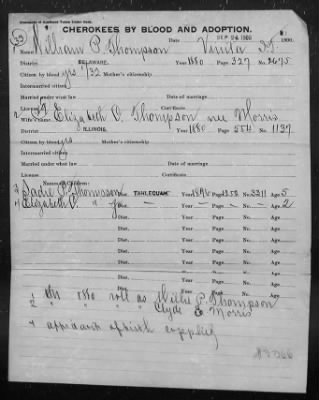 CHEROKEES BY BLOOD AND ADOPTION.
SEP 24 1900
Name William P. Thompson Date Vinita I.T. 1900.
District DELAWARE. Year 1880 Page 327 No. 2675
Citizen by blood yes 1/32 Mother's citizenship
Intermarried citizen
Married under what law Date of marriage
License Certificate
Wife's name Elizabeth C. Thompson nee Morris
District ILLINOIS. Year 1880 Page 554 No. 1137
Citizen by blood yes Mother's citizenship
Intermarried citizen
Married under what law Date of marriage
License Certificate
Names of Children:
Sadie Thompson Dist. TAHLEQUAH Year 1896 Page 1258 No. 3211 Age 5
Elizabeth " Dist. Year — Page — No. — Age 2
Dist. Year Page No. Age
Dist. Year Page No. Age
Dist. Year Page No. Age
Dist. Year Page No. Age
Dist. Year Page No. Age
1 On 1880 roll as Willie P. Thompson
2 " " " " Clyde Morris
4 affidavit of birth supplied